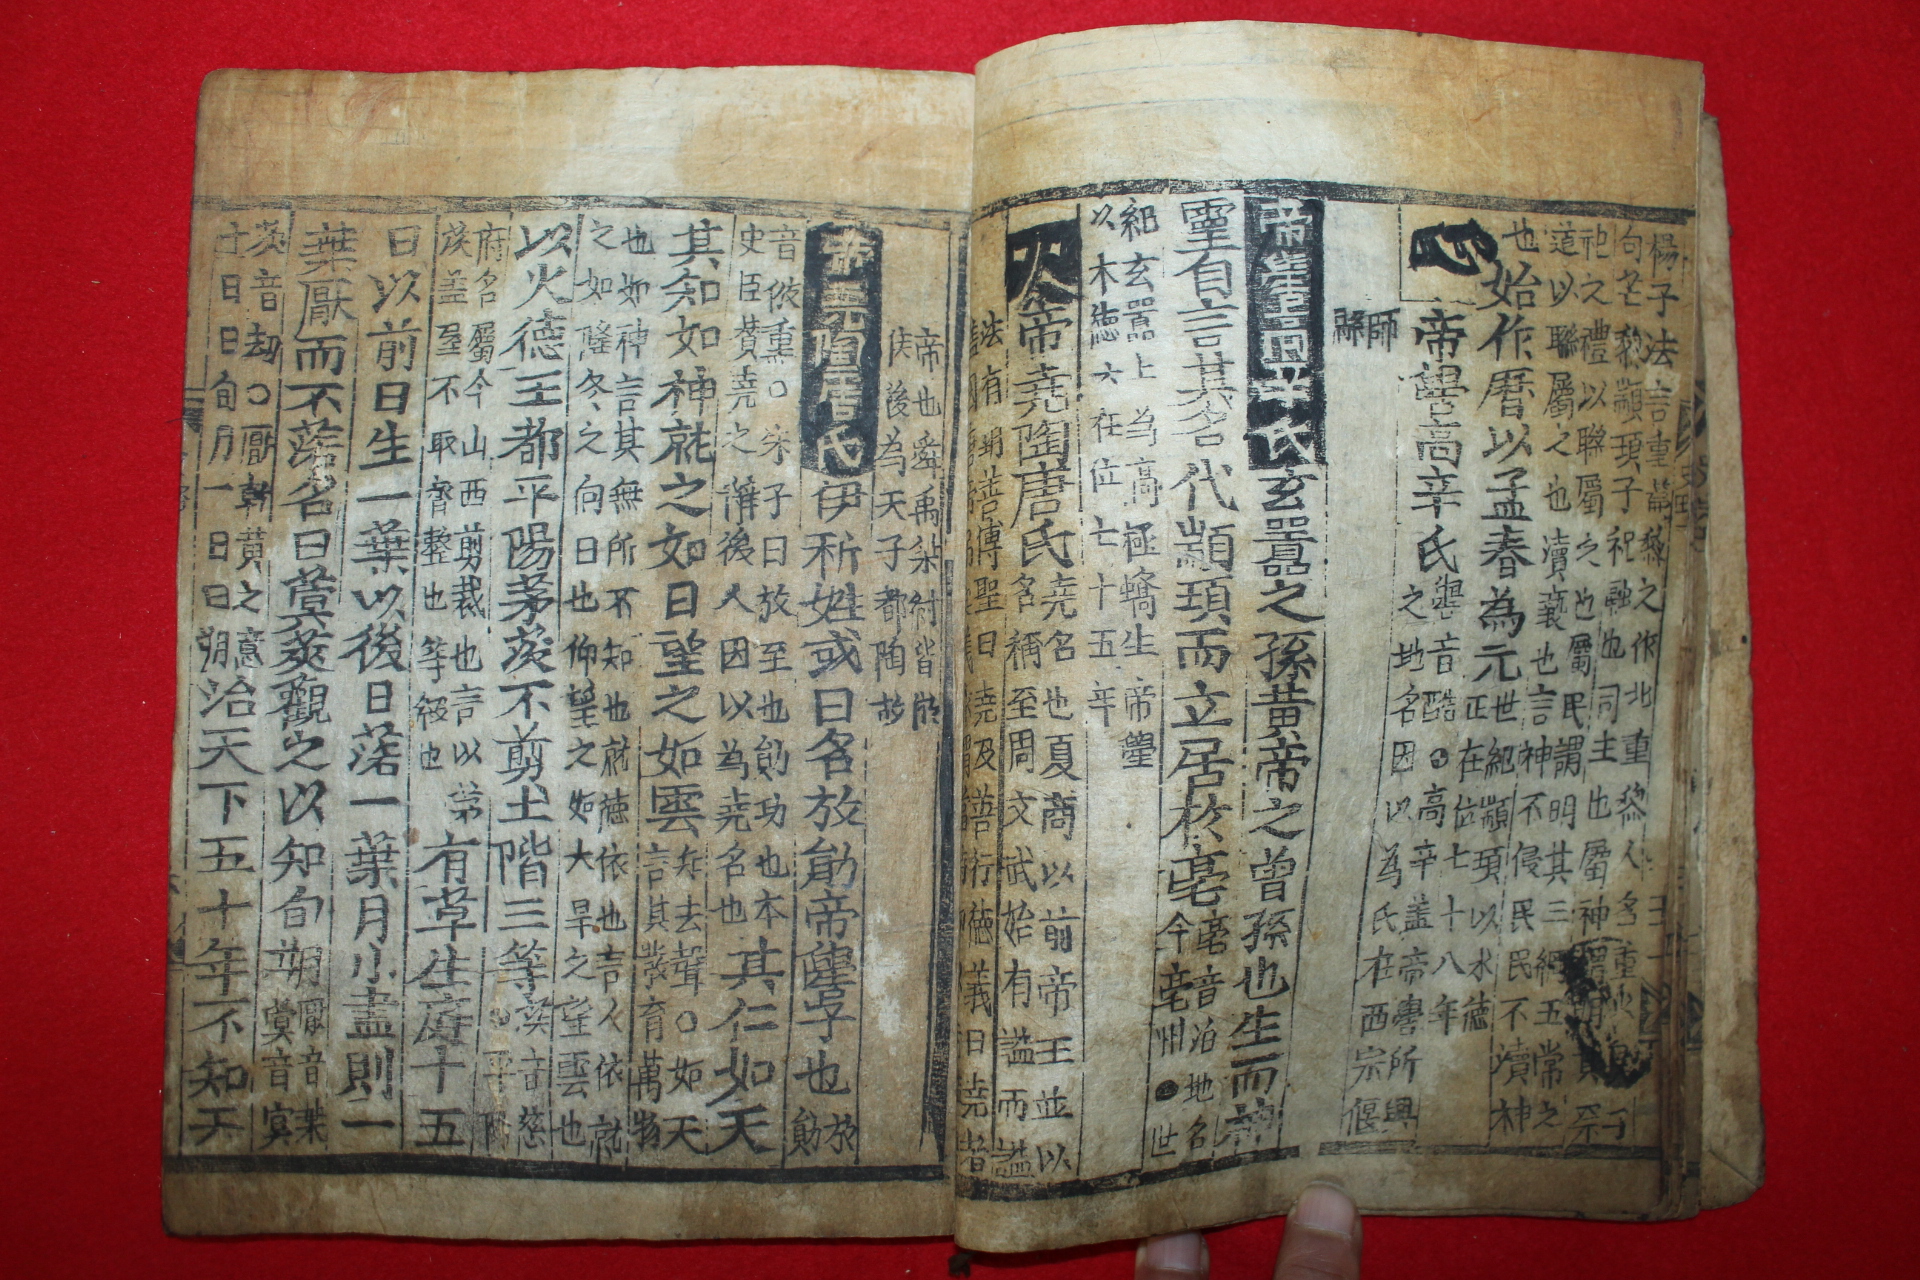 楊子法言重黎
句芒黎顓頊子祝融也司主也屬神
祀之禮以聯屬之也屬民謂明其三綱五常之
道以聯屬之也瀆褻也言神不侵民民不瀆神
也始作曆以孟春為元
世紀顓頊以水德
正在位七十八年
帝嚳高辛氏
嚳音酷●高辛盖帝嚳所興
之地名因以為氏在西宗偃
師
縣
帝嚳高辛氏玄囂之孫黃帝之曾孫也生而神
靈自言其名代顓頊而立居於亳
亳音泊地名
今亳州●世
紀玄囂上為高極蟜生帝嚳
以木德六在位七十五年
帝堯陶唐氏
堯名也夏商以前帝王並以
名稱至周文武始有謚而謚
法有翊善傳聖曰堯及善行德義曰堯者
帝也舜禹桀紂皆然
侯後為天子都陶故
帝堯陶唐氏伊祈姓或曰名放勛帝嚳子也
放
勛
音倣熏○朱子曰放至也勛功也本
史臣贊堯之辭後人因以為堯名也
其仁如天
其知如神就之如日望之如雲
去聲○如天
言其發育萬物
也如神言其無所不知也就德依也言人依就
之如隆冬之向日也仰望之如大旱之望雲也
以火德王都平陽茅茨不剪土階三等
茨音慈
●平陽
府名屬今山西剪裁也言以茅
茨盖屋不取齊整也等級也
有草生庭十五
日以前日生一葉以後日落一葉月小盡則一
葉厭而不落名曰蓂莢觀之以知旬朔
厭音葉
蓂音冥
莢音劫○厭乾黃之意
十日曰旬月一日曰朔
治天下五十年不知天